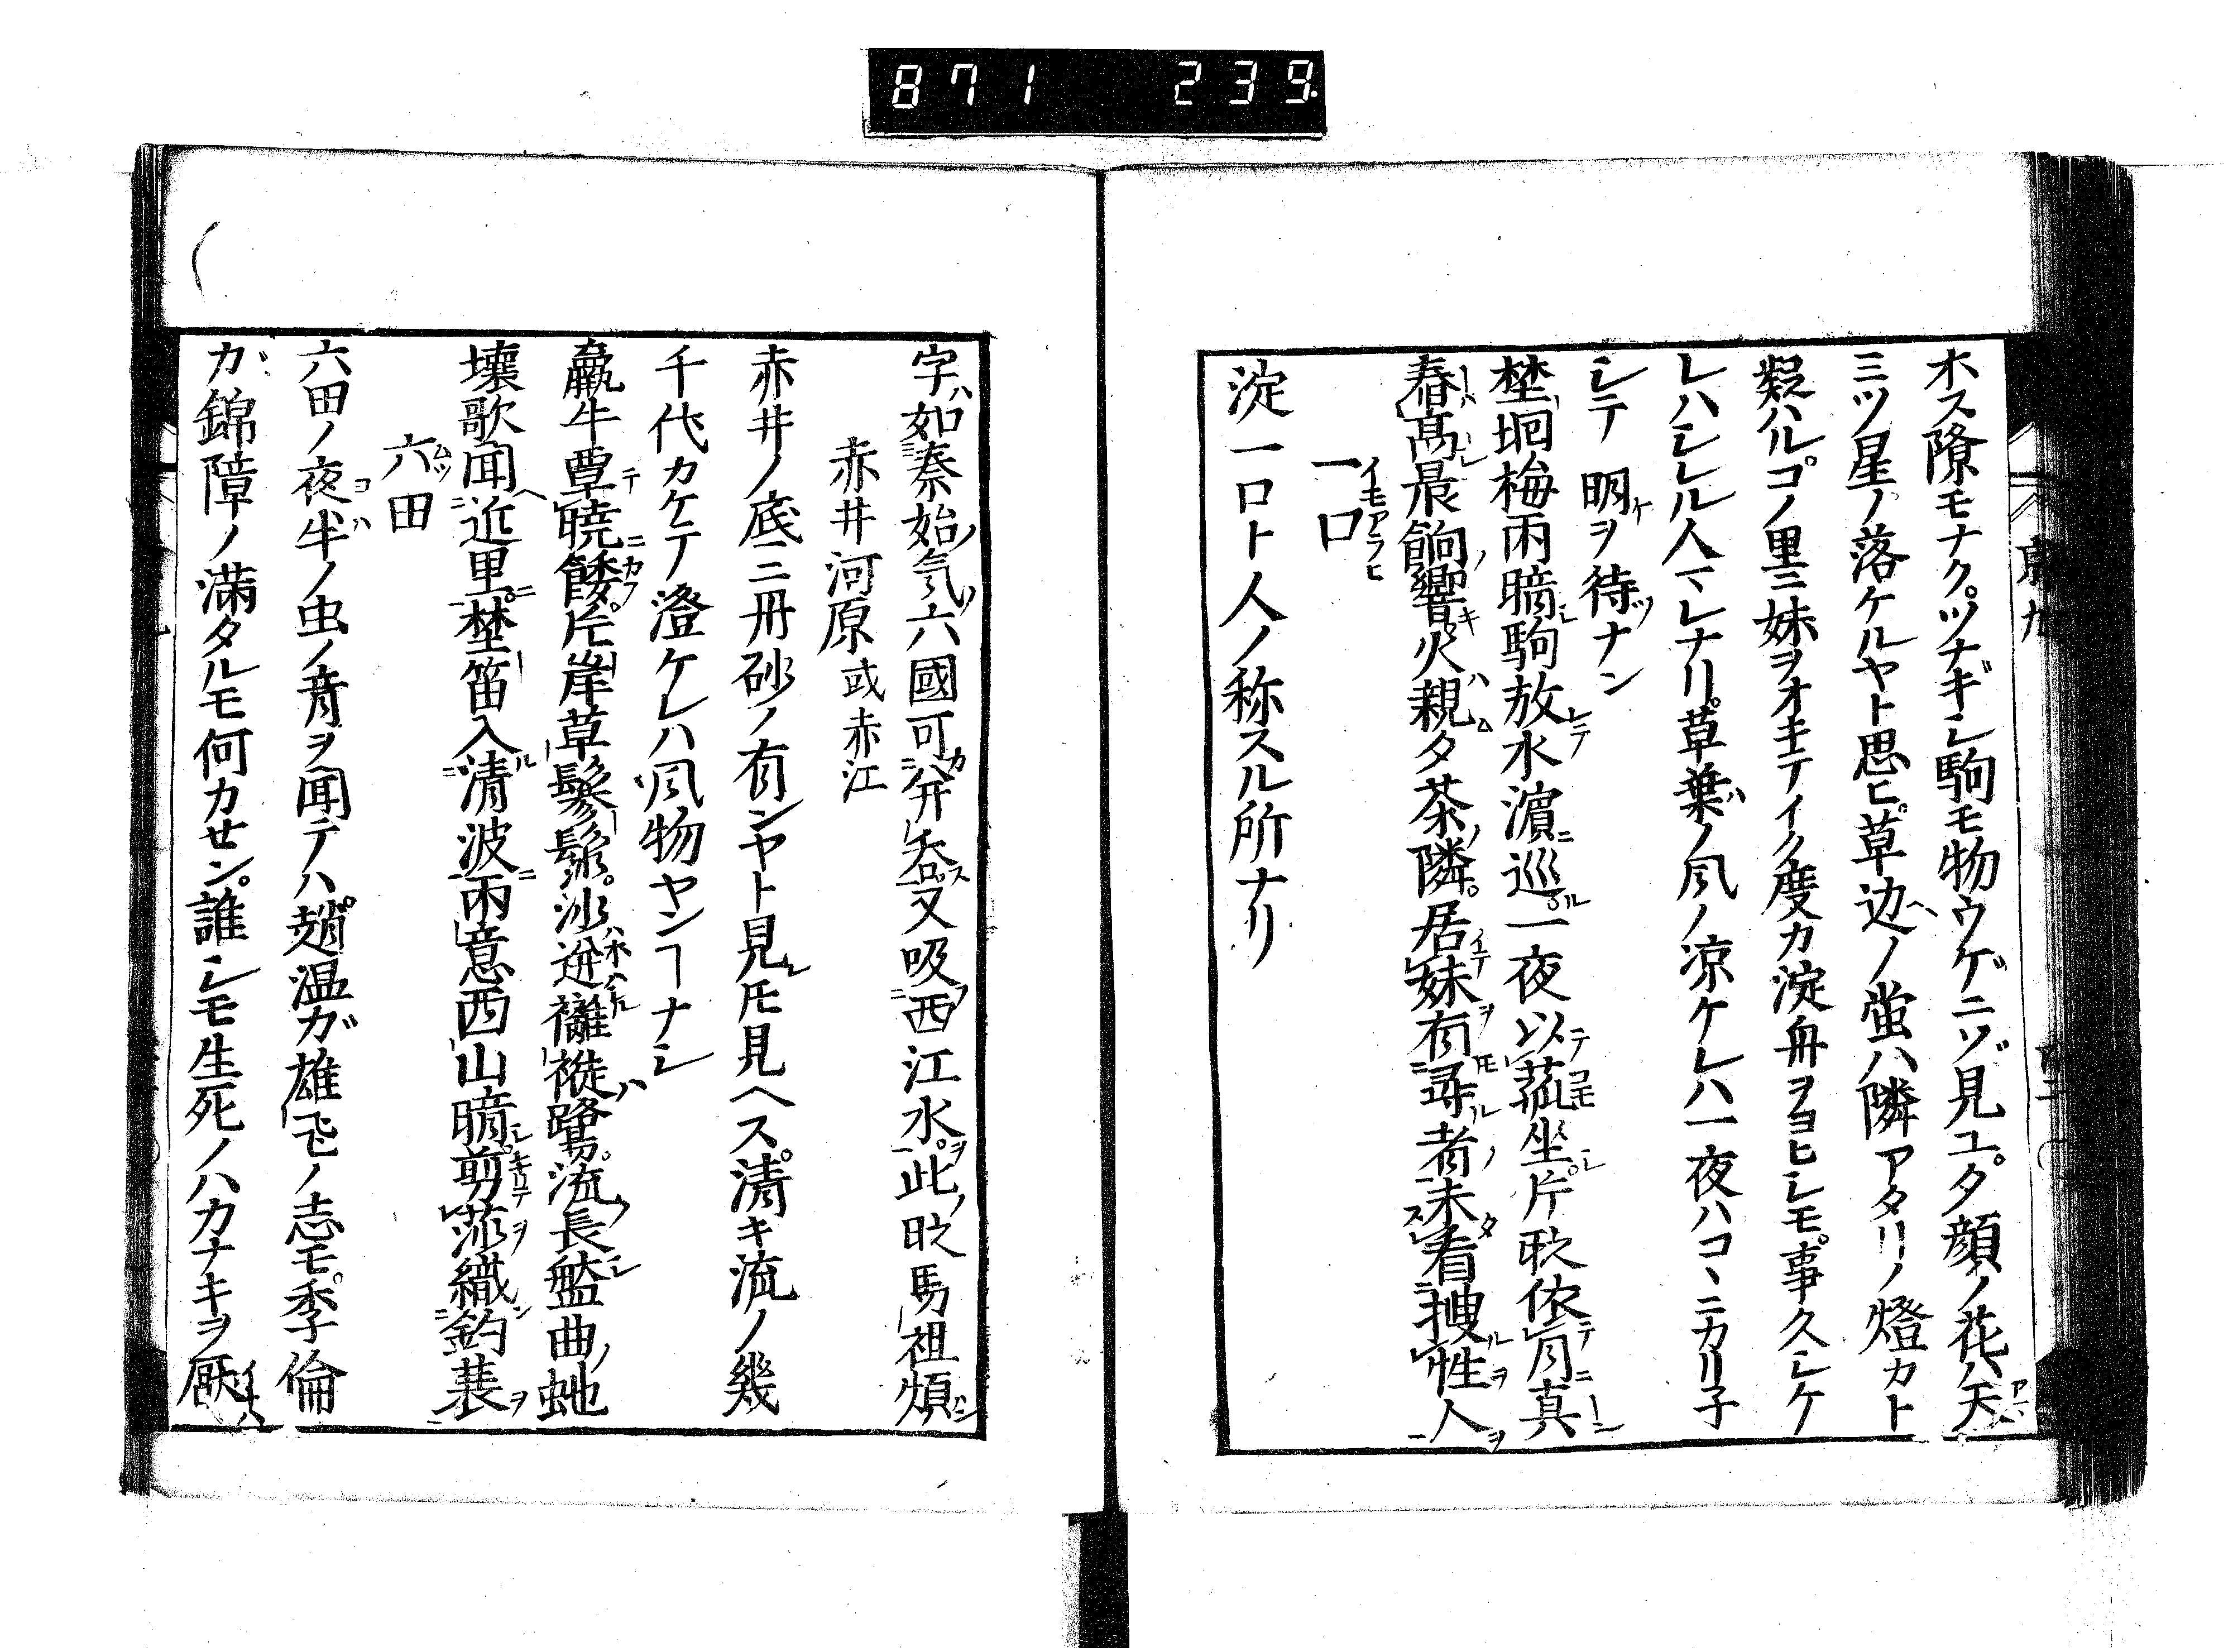 871 239
木ス隙モナク。ツナギシ駒モ物ウゲニゾ見ユ。夕顔ノ花ハ天
三ツ星ノ落ケルヤト思ヒ。草辺ノ蛍ハ隣アタリノ燈カト
疑ハル。コノ里ニ妹ヲオキテイク度カ淀舟ヲヨヒシモ。事久シケ
レハシレル人マレナリ。草葉ノ風ノ凉ケレハ一夜ハコヽニカリ子
シテ明ヲ待ナン
埜垌梅雨暗駒放水濵巡。一夜以菰坐。片㪽依肓真
春高晨餉響火親夕茶隣。居妹有尋者未看捜性人
一口
イモアラヒ
淀一口ト人ノ称スル所ナリ
字如秦始気六國可并呑又吸西江水。此㪽馬祖煩
赤井河原 或赤江
赤井ノ底ニ丹砂ノ有ンヤト見レ𪜈見ヘス。清キ流ノ幾
千代カケテ澄ケレハ風物ヤンヿナシ
羸牛覃暁餧。片岸草鬖髿。沙逬襳褷鷺。流長盤曲虵
壊歌聞近里。埜笛入清波。雨意西山暗。剪莎織釣蓑
六田
ムツ
六田ノ夜半ノ虫ノ音ヲ聞テハ。趙温ガ雄飛ノ志モ。季倫
ガ錦障ノ満タルモ何カセン。誰シモ生死ノハカナキヲ厭